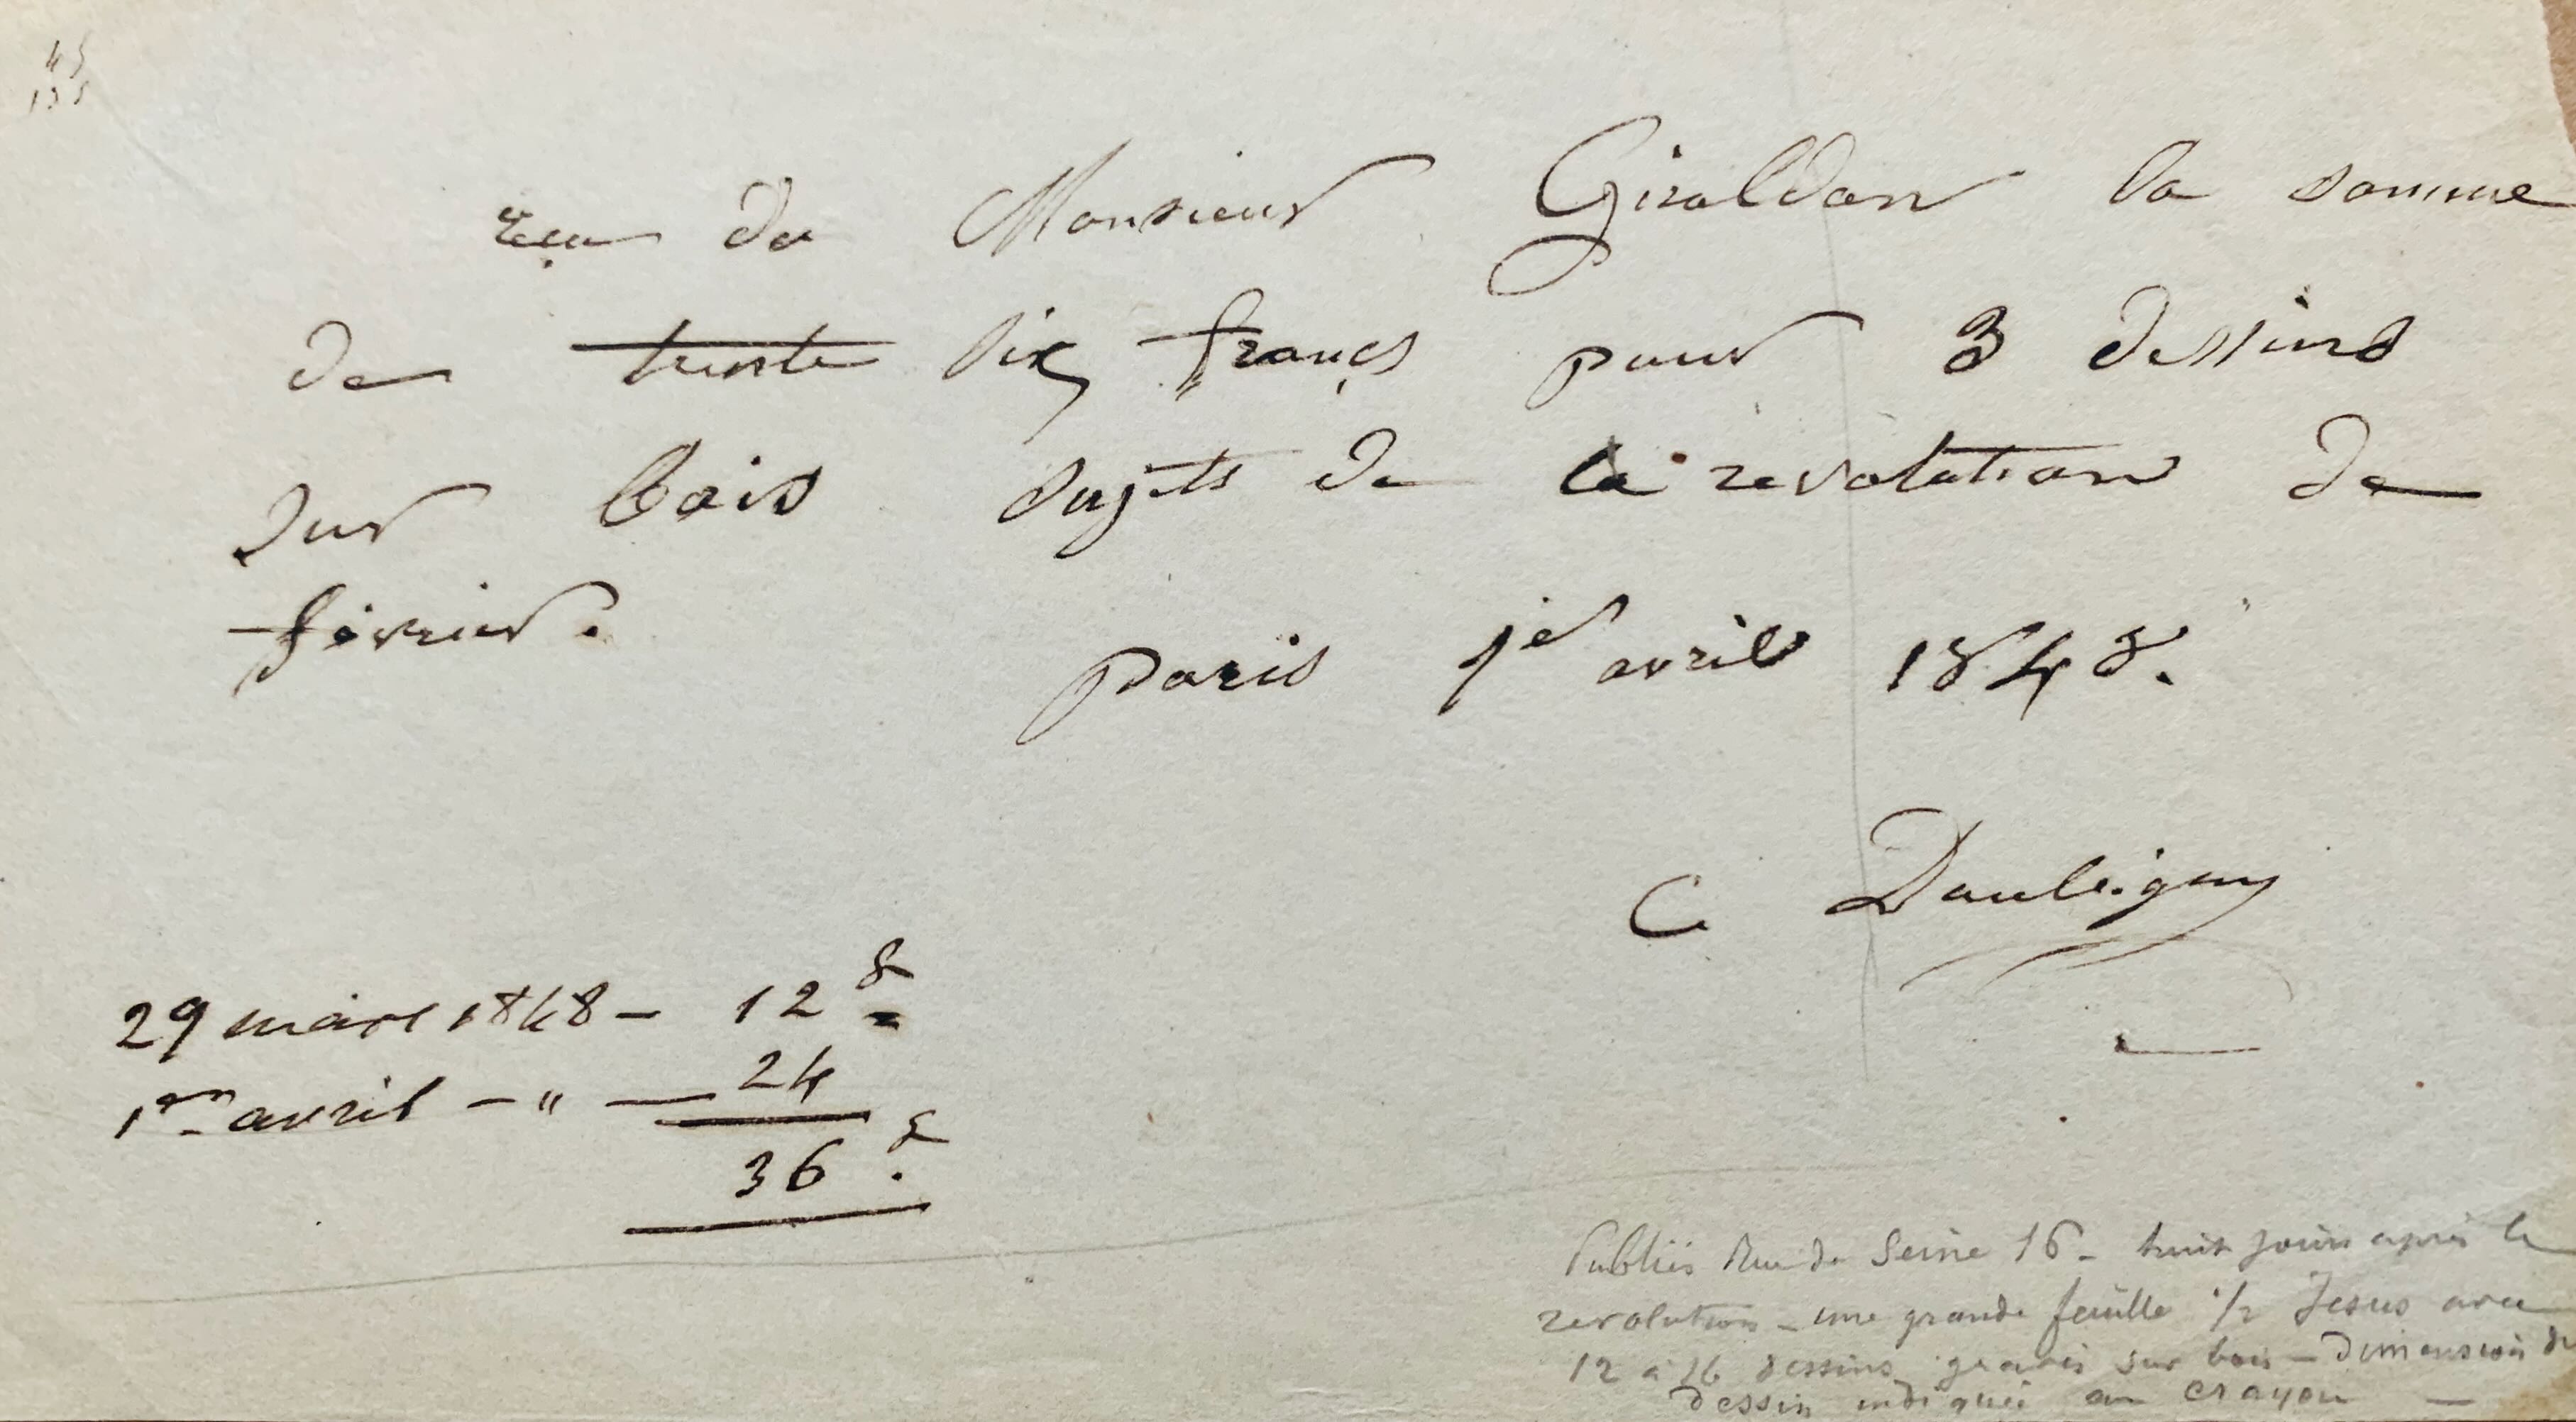 45
135
reçu de Monsieur Giraldon la somme
de trente six francs pour 3 dessins
sur bois sujets de la révolution de
février.
Paris 1er avril 1848.
C Daubigny
29 mars 1848 – 12 f
1er avril – " — 24
36 f.
Publiés Rue de Seine 16 – huit jours après la
revolution – une grande feuille 1/2 Jesus avec
12 à 16 dessins gravés sur bois – Dimension du
dessin indiquée au crayon —